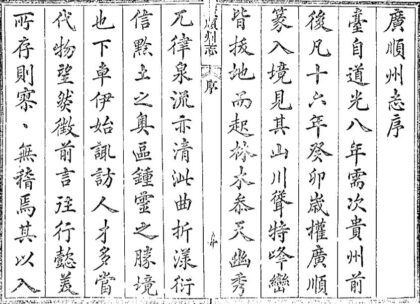 廣順州志序
臺自道光八年需次貴州前
後凡十六年癸卯歲權廣順
篆入境見其山川聳特峰巒
皆拔地而起林木參天幽秀
順州志
序
兀律泉流亦清泚曲折漾衍
信黔土之奧區鍾靈之勝境
也下車伊始諏訪人才多當
代物望然徵前言往行懿美
所存則寥〻無稽焉其以入